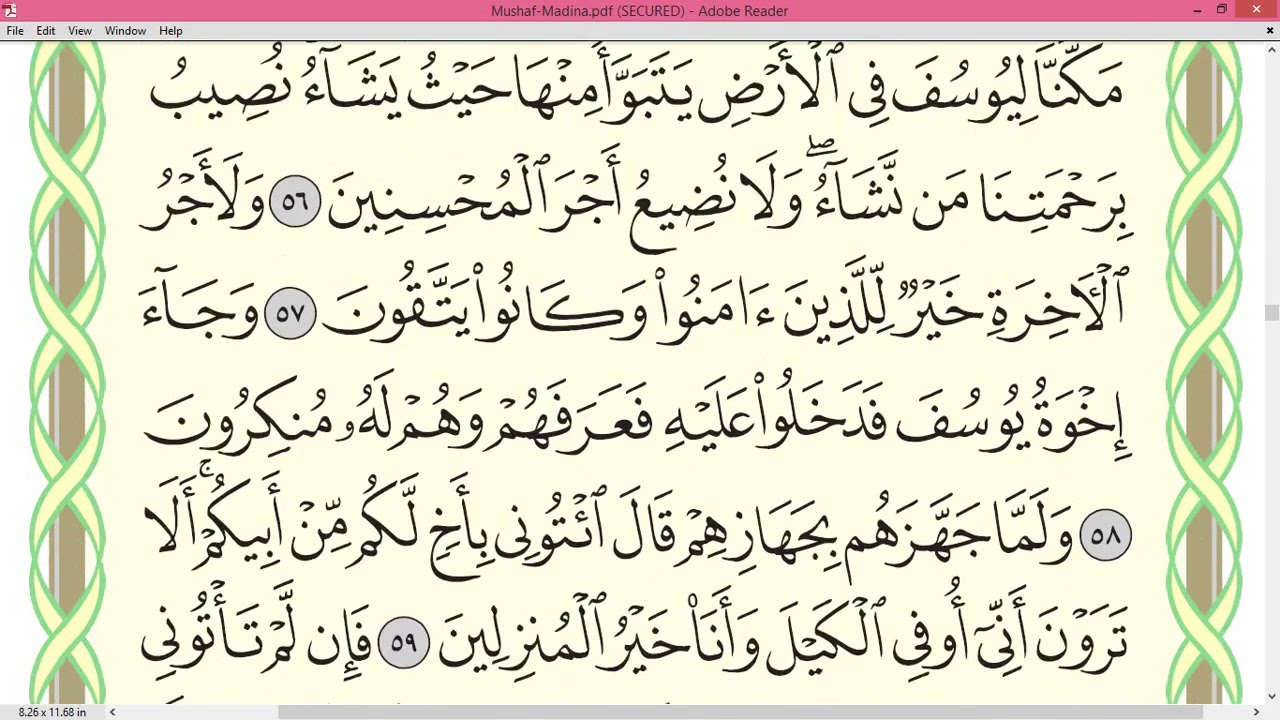 Mushaf-Madina.pdf (SECURED) - Adobe Reader
File Edit View Window Help
مَكَّنَّا لِيُوسُفَ فِي ٱلْأَرْضِ يَتَبَوَّأُ مِنْهَا حَيْثُ يَشَآءُ نُصِيبُ
بِرَحْمَتِنَا مَن نَّشَآءُ ۖ وَلَا نُضِيعُ أَجْرَ ٱلْمُحْسِنِينَ ٥٦ وَلَأَجْرُ
ٱلْـَٔاخِرَةِ خَيْرٌ لِّلَّذِينَ ءَامَنُوا۟ وَكَانُوا۟ يَتَّقُونَ ٥٧ وَجَآءَ
إِخْوَةُ يُوسُفَ فَدَخَلُوا۟ عَلَيْهِ فَعَرَفَهُمْ وَهُمْ لَهُۥ مُنكِرُونَ
٥٨ وَلَمَّا جَهَّزَهُم بِجَهَازِهِمْ قَالَ ٱئْتُونِي بِأَخٍ لَّكُم مِّنْ أَبِيكُمْ ۚ أَلَا
تَرَوْنَ أَنِّيٓ أُوفِي ٱلْكَيْلَ وَأَنَا۠ خَيْرُ ٱلْمُنزِلِينَ ٥٩ فَإِن لَّمْ تَأْتُونِي
8.26 x 11.68 in